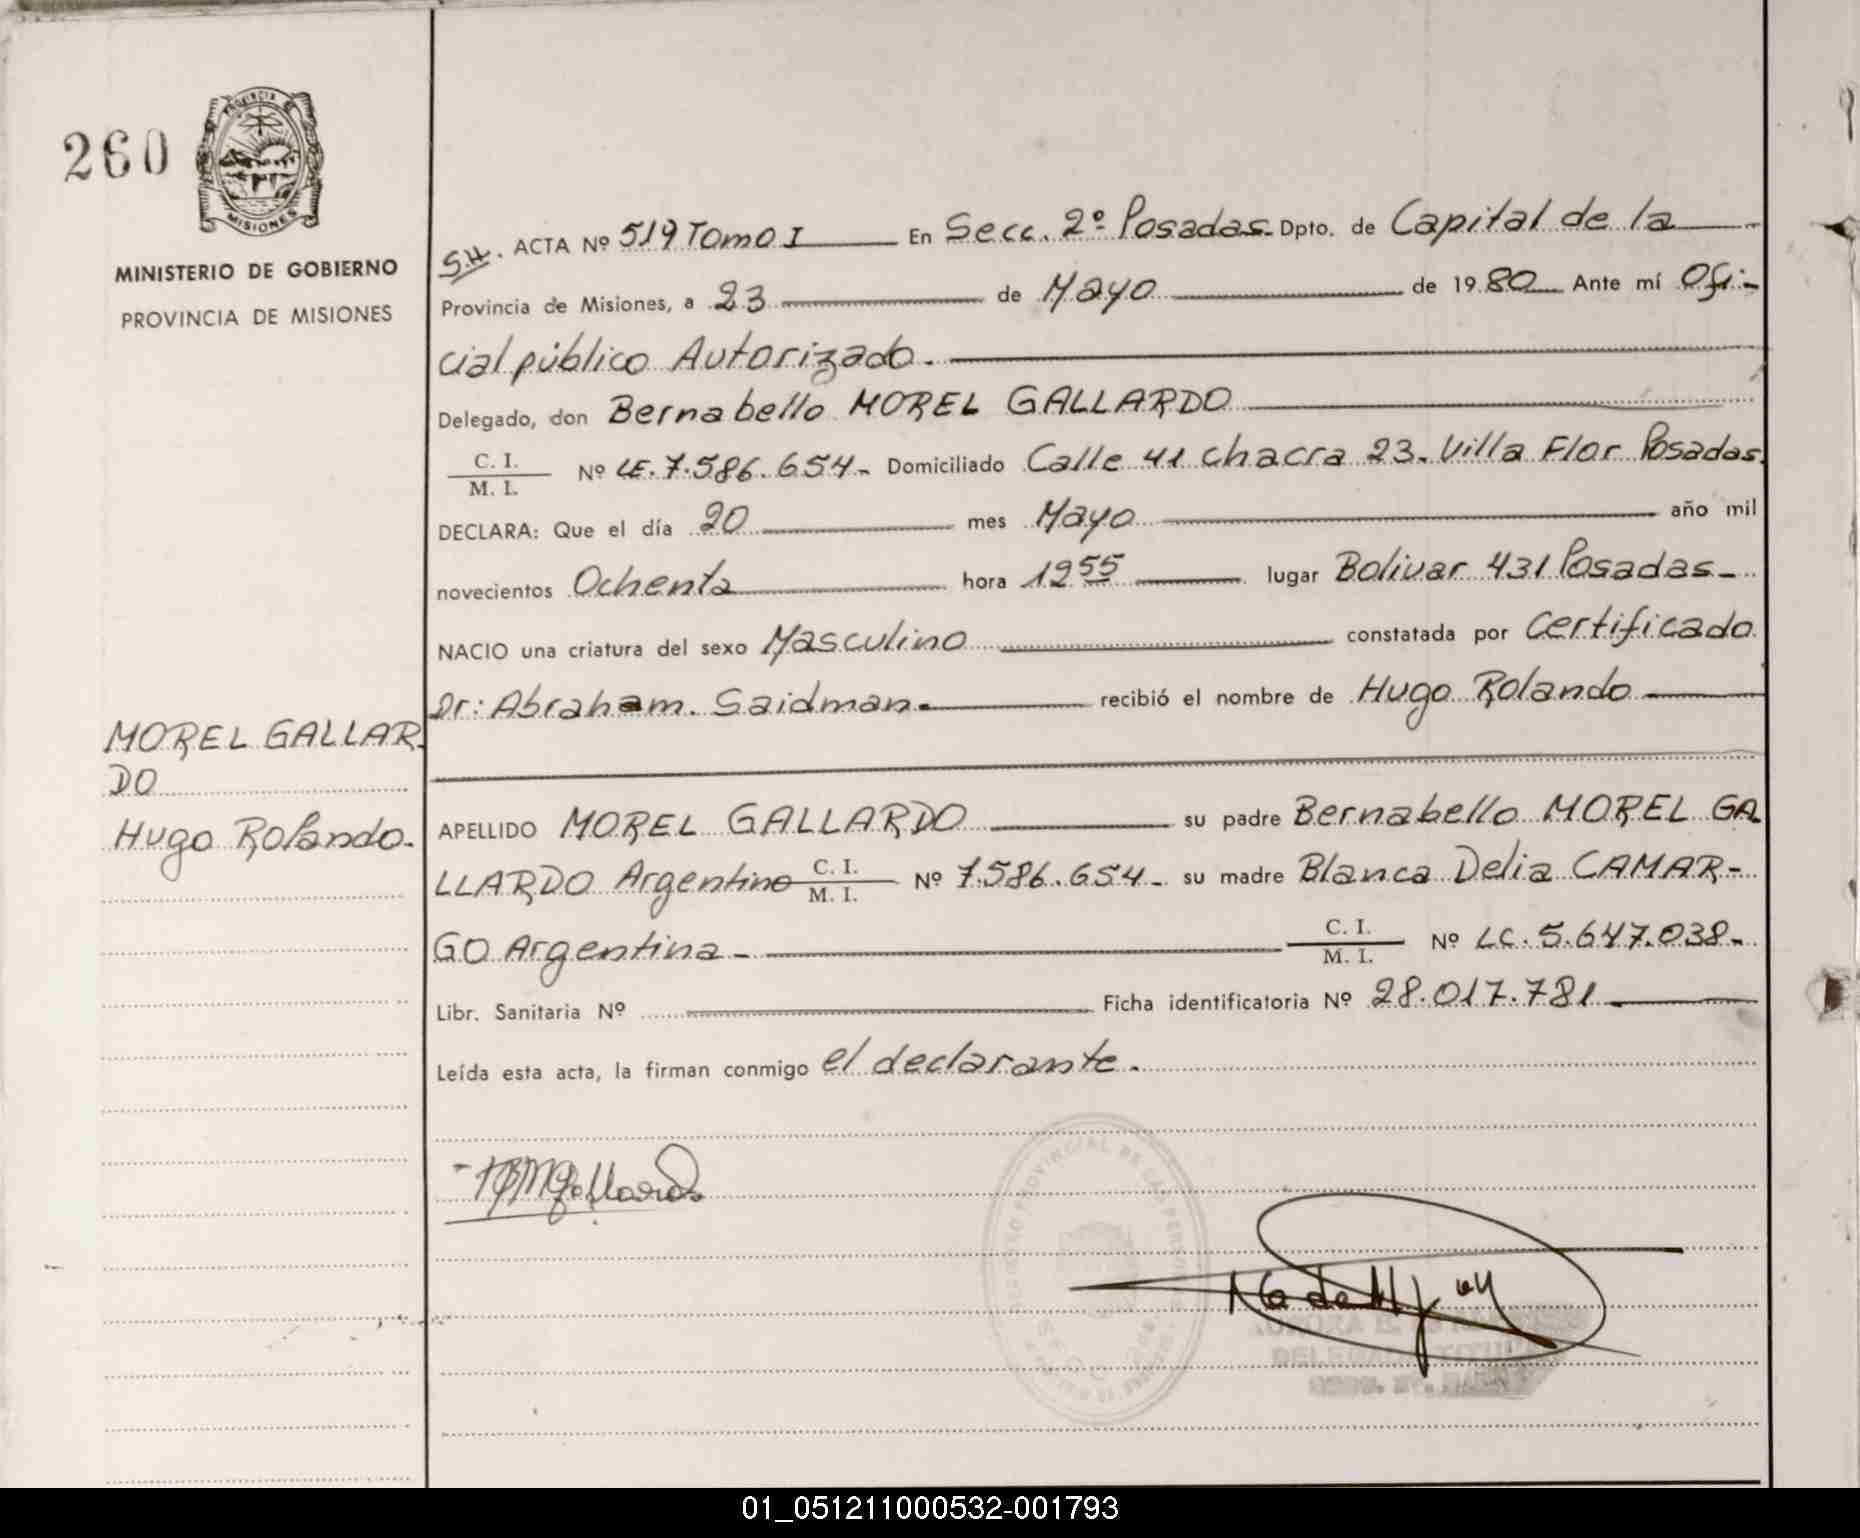 260
PROVINCIA DE
MISIONES
MINISTERIO DE GOBIERNO
PROVINCIA DE MISIONES
MOREL GALLAR-
DO
Hugo Rolando.
S.H. ACTA Nº 519 Tomo I En Secc. 2º Posadas. Dpto. de Capital de la
Provincia de Misiones, a 23 de Mayo de 1980 Ante mí Ofi-
cial público Autorizado.
Delegado, don Bernabello MOREL GALLARDO
C. I.
M. I. Nº LE. 7.586.654- Domiciliado Calle 41 chacra 23. Villa Flor Posadas.
DECLARA: Que el día 20 mes Mayo año mil
novecientos Ochenta hora 12 55 lugar Bolivar 431 Posadas-
NACIO una criatura del sexo Masculino constatada por Certificado
Dr: Abraham. Saidman. recibió el nombre de Hugo Rolando
APELLIDO MOREL GALLARDO su padre Bernabello MOREL GA-
LLARDO Argentino C. I. M. I. Nº 7.586.654- su madre Blanca Delia CAMAR-
GO Argentina- C. I. M. I. Nº LC. 5.647.038-
Libr. Sanitaria Nº Ficha identificatoria Nº 28.017.781
Leída esta acta, la firman conmigo el declarante.
01_051211000532-001793